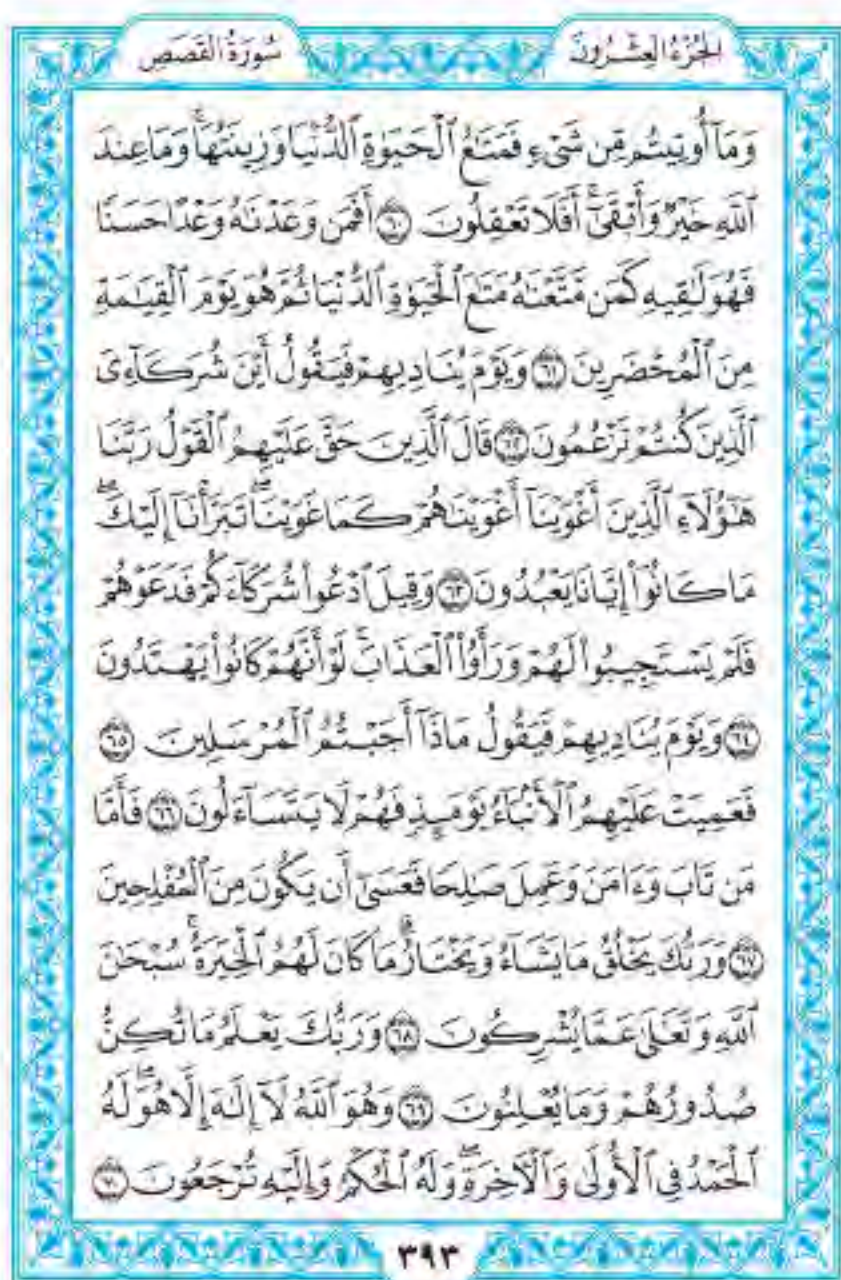 الجُزْءُ العِشْرُونَ سُورَةُ القَصَصِ
وَمَآ أُوتِيتُم مِّن شَىْءٍ فَمَتَٰعُ ٱلْحَيَوٰةِ ٱلدُّنْيَا وَزِينَتُهَا ۚ وَمَا عِندَ
ٱللَّهِ خَيْرٌ وَأَبْقَىٰٓ ۚ أَفَلَا تَعْقِلُونَ ۝٦٠ أَفَمَن وَعَدْنَٰهُ وَعْدًا حَسَنًا
فَهُوَ لَٰقِيهِ كَمَن مَّتَّعْنَٰهُ مَتَٰعَ ٱلْحَيَوٰةِ ٱلدُّنْيَا ثُمَّ هُوَ يَوْمَ ٱلْقِيَٰمَةِ
مِنَ ٱلْمُحْضَرِينَ ۝٦١ وَيَوْمَ يُنَادِيهِمْ فَيَقُولُ أَيْنَ شُرَكَآءِىَ
ٱلَّذِينَ كُنتُمْ تَزْعُمُونَ ۝٦٢ قَالَ ٱلَّذِينَ حَقَّ عَلَيْهِمُ ٱلْقَوْلُ رَبَّنَا
هَٰٓؤُلَآءِ ٱلَّذِينَ أَغْوَيْنَآ أَغْوَيْنَٰهُمْ كَمَا غَوَيْنَا ۖ تَبَرَّأْنَآ إِلَيْكَ ۖ
مَا كَانُوٓا۟ إِيَّانَا يَعْبُدُونَ ۝٦٣ وَقِيلَ ٱدْعُوا۟ شُرَكَآءَكُمْ فَدَعَوْهُمْ
فَلَمْ يَسْتَجِيبُوا۟ لَهُمْ وَرَأَوُا۟ ٱلْعَذَابَ ۚ لَوْ أَنَّهُمْ كَانُوا۟ يَهْتَدُونَ
۝٦٤ وَيَوْمَ يُنَادِيهِمْ فَيَقُولُ مَاذَآ أَجَبْتُمُ ٱلْمُرْسَلِينَ ۝٦٥
فَعَمِيَتْ عَلَيْهِمُ ٱلْأَنۢبَآءُ يَوْمَئِذٍ فَهُمْ لَا يَتَسَآءَلُونَ ۝٦٦ فَأَمَّا
مَن تَابَ وَءَامَنَ وَعَمِلَ صَٰلِحًا فَعَسَىٰٓ أَن يَكُونَ مِنَ ٱلْمُفْلِحِينَ
۝٦٧ وَرَبُّكَ يَخْلُقُ مَا يَشَآءُ وَيَخْتَارُ ۗ مَا كَانَ لَهُمُ ٱلْخِيَرَةُ ۚ سُبْحَٰنَ
ٱللَّهِ وَتَعَٰلَىٰ عَمَّا يُشْرِكُونَ ۝٦٨ وَرَبُّكَ يَعْلَمُ مَا تُكِنُّ
صُدُورُهُمْ وَمَا يُعْلِنُونَ ۝٦٩ وَهُوَ ٱللَّهُ لَآ إِلَٰهَ إِلَّا هُوَ ۖ لَهُ
ٱلْحَمْدُ فِى ٱلْأُولَىٰ وَٱلْءَاخِرَةِ ۖ وَلَهُ ٱلْحُكْمُ وَإِلَيْهِ تُرْجَعُونَ ۝٧٠
٣٩٣